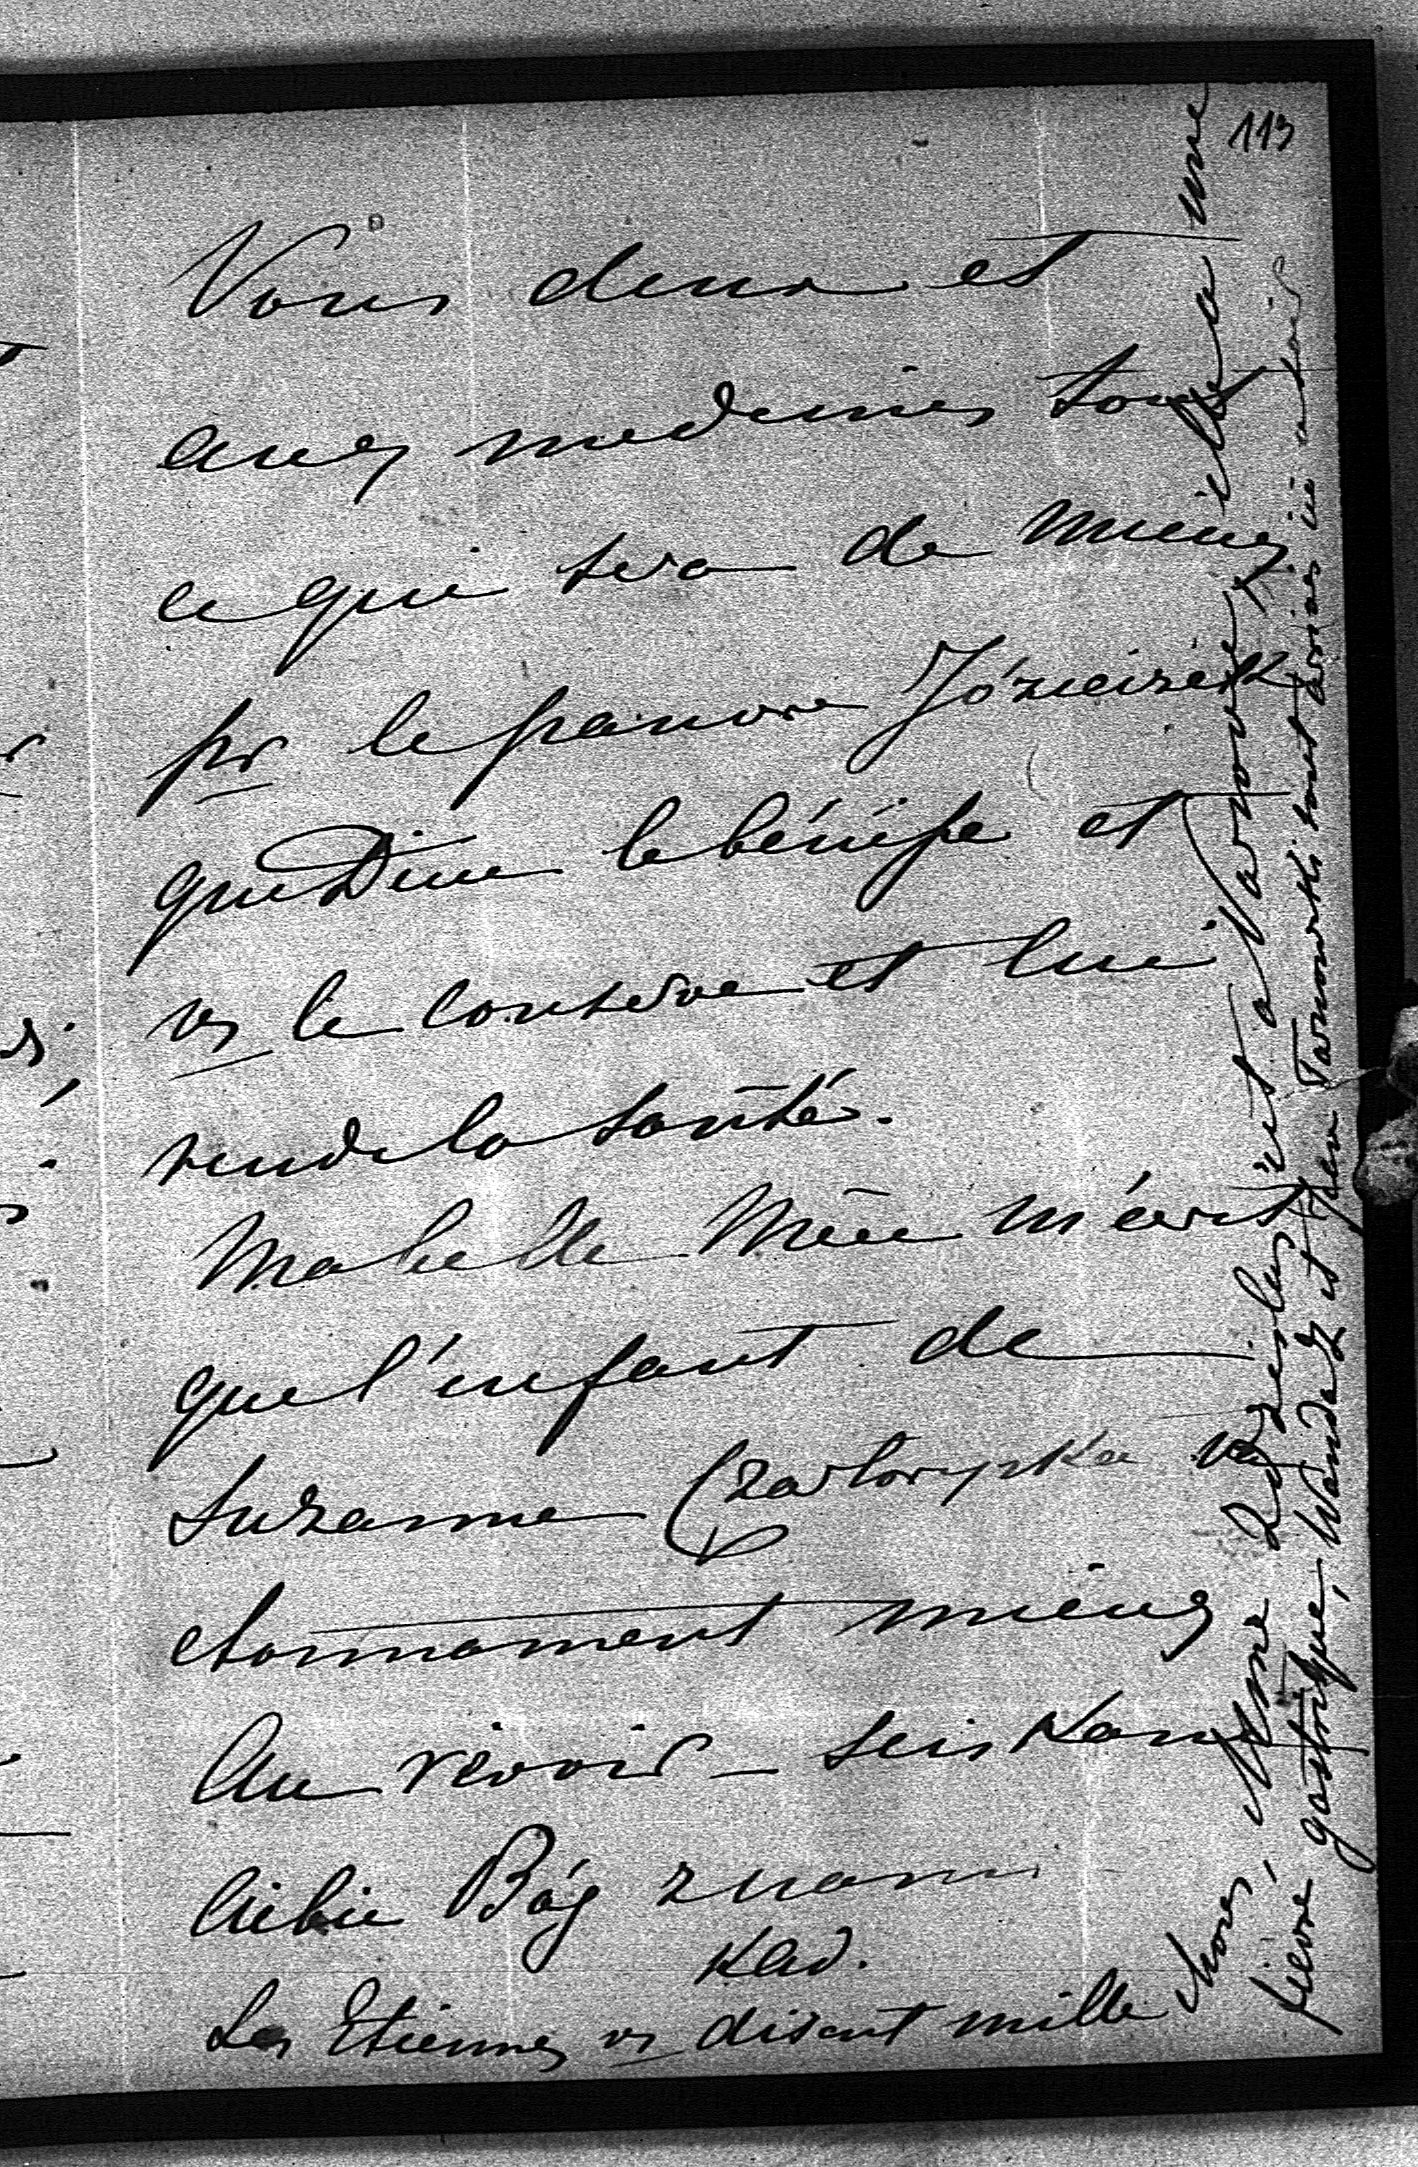 113
Vous deux et
avez medecines tout
ce qui sera de mieux
pr le pauvre Józieizek
que Dieu le bénisse et
vs le conserve et lui
rende la santé.
Ma belle Mère m'écrit
que l'enfant de
Suzanne Czartoryska va
etonnament mieux
Au revoir – sciskam
Ciebie Bóg z nami
KAd.
Les Etiennes vs disent mille
choses, Mme Zdzislas est a Varsovie, elle a une
fievre gastrique, Wanda Z et Jean Tarnowski sont arrivés ici ce soir